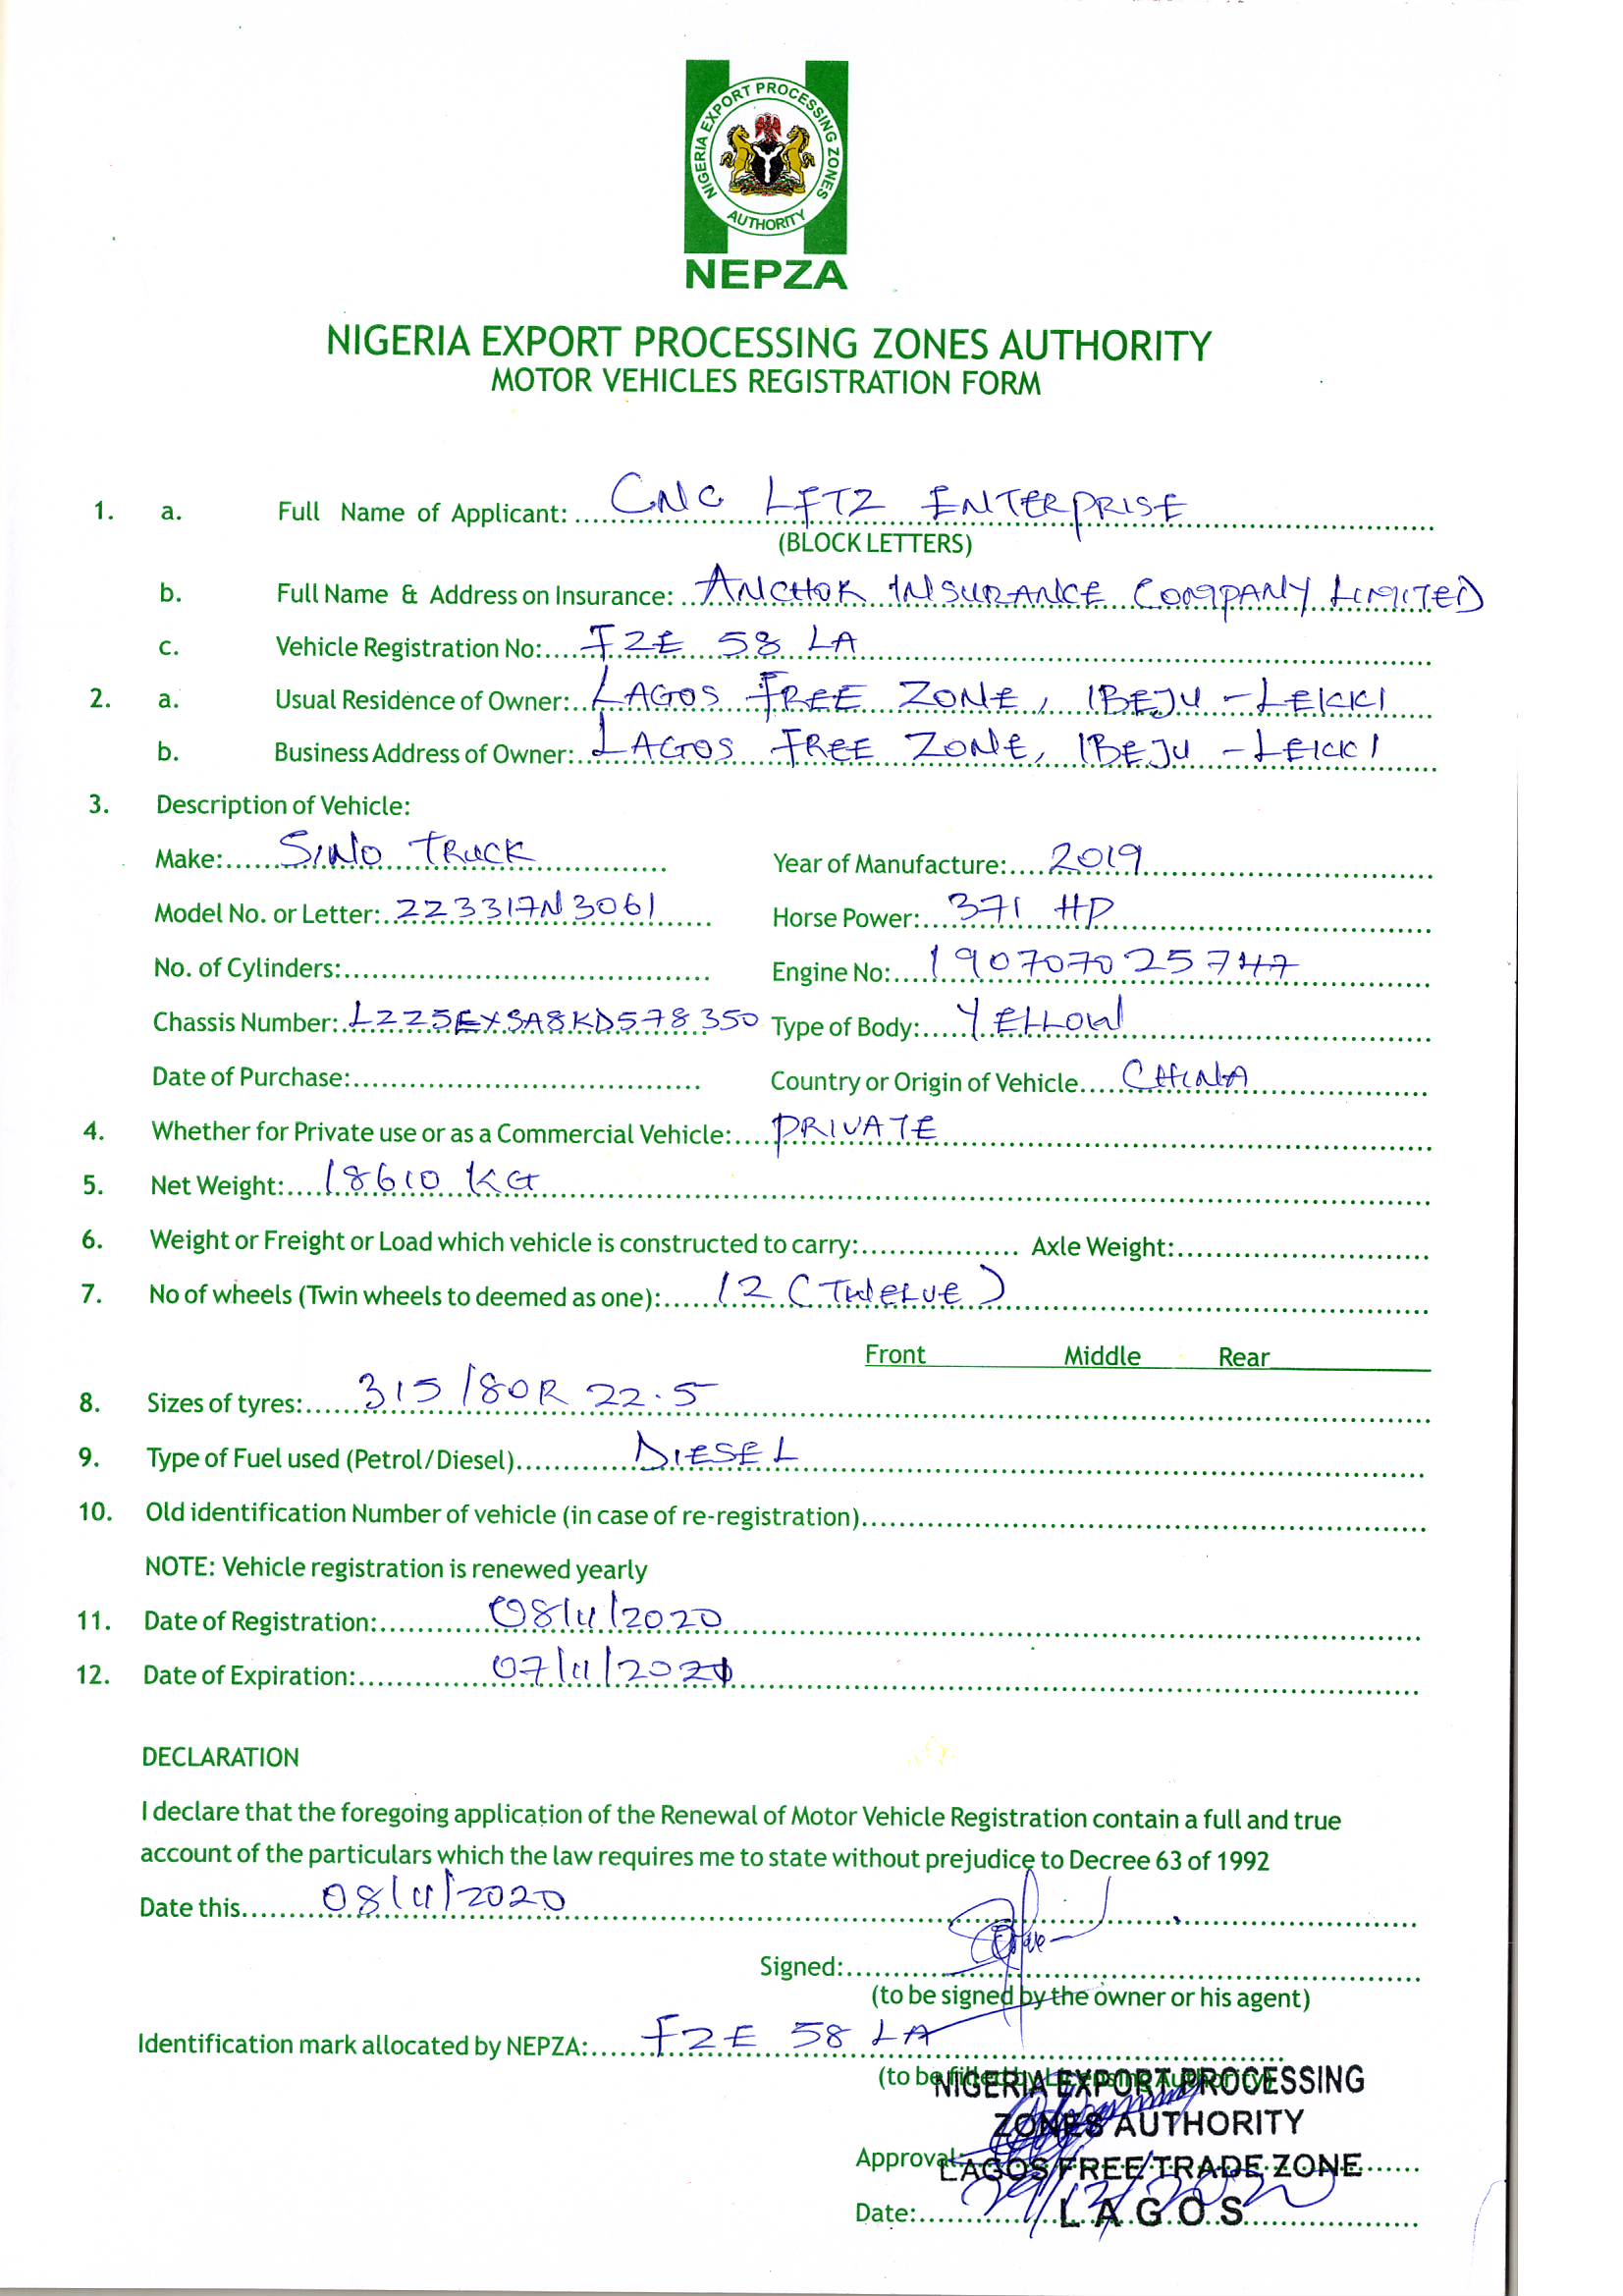 NIGERIA EXPORT PROCESSING ZONES
AUTHORITY
NEPZA
NIGERIA EXPORT PROCESSING ZONES AUTHORITY
MOTOR VEHICLES REGISTRATION FORM
1. a. Full Name of Applicant: CNC LFTZ ENTERPRISE
(BLOCK LETTERS)
b. Full Name & Address on Insurance: ANCHOR INSURANCE COMPANY LIMITED
c. Vehicle Registration No: FZE 58 LA
2. a. Usual Residence of Owner: LAGOS FREE ZONE, IBEJU - LEKKI
b. Business Address of Owner: LAGOS FREE ZONE, IBEJU - LEKKI
3. Description of Vehicle:
Make: SINO TRUCK Year of Manufacture: 2019
Model No. or Letter: ZZ3317N3061 Horse Power: 371 HP
No. of Cylinders: Engine No: 190707025747
Chassis Number: LZZ5EXSA8KD578350 Type of Body: YELLOW
Date of Purchase: Country or Origin of Vehicle CHINA
4. Whether for Private use or as a Commercial Vehicle: PRIVATE
5. Net Weight: 18610 KG
6. Weight or Freight or Load which vehicle is constructed to carry: Axle Weight:
7. No of wheels (Twin wheels to deemed as one): 12 (TWELVE)
Front Middle Rear
8. Sizes of tyres: 315/80R 22.5
9. Type of Fuel used (Petrol/Diesel) DIESEL
10. Old identification Number of vehicle (in case of re-registration)
NOTE: Vehicle registration is renewed yearly
11. Date of Registration: 08/11/2020
12. Date of Expiration: 07/11/2021
DECLARATION
I declare that the foregoing application of the Renewal of Motor Vehicle Registration contain a full and true
account of the particulars which the law requires me to state without prejudice to Decree 63 of 1992
Date this 08/11/2020
Signed:
(to be signed by the owner or his agent)
Identification mark allocated by NEPZA: FZE 58 LA
(to be filled by Licensing Authority)
NIGERIA EXPORT PROCESSING
ZONES AUTHORITY
Approval:
LAGOS FREE TRADE ZONE
Date: 29/12/2020
LAGOS